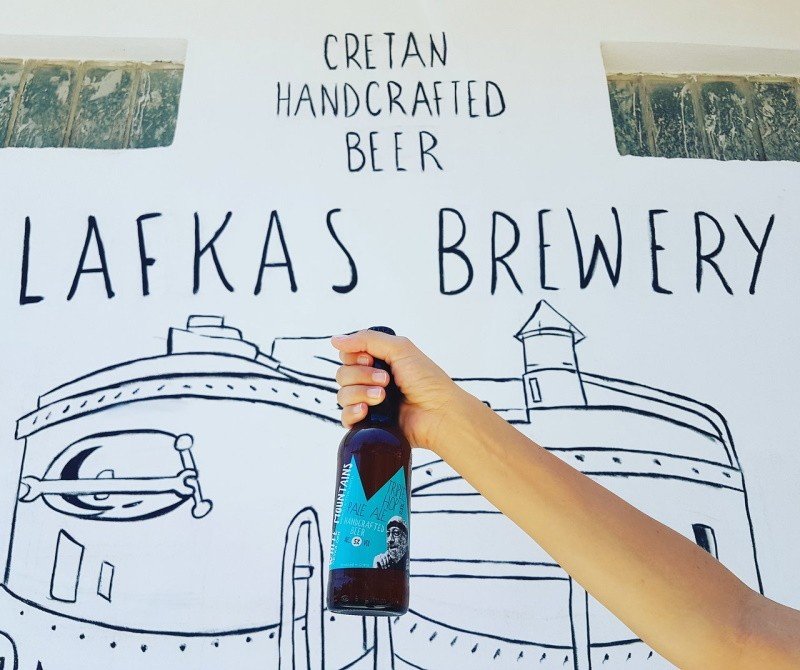 CRETAN
HANDCRAFTED
BEER
LAFKAS BREWERY
MOUNTAINS
PALE ALE
HANDCRAFTED
BEER